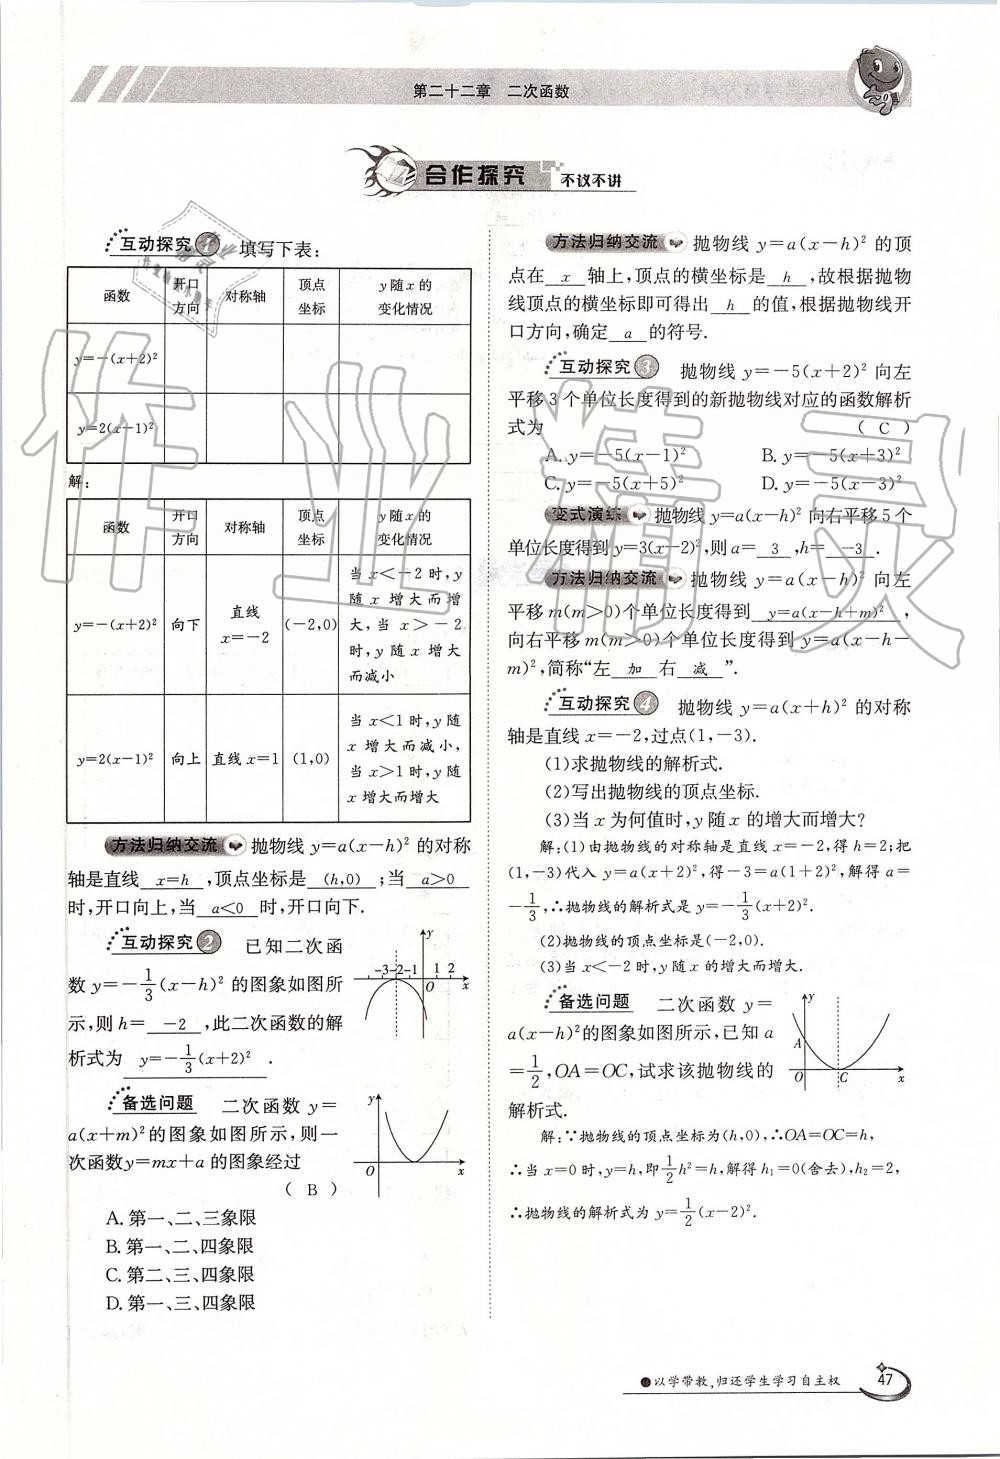 第二十二章 二次函数
合作探究 不议不讲
互动探究1 填写下表:
函数 开口方向 对称轴 顶点坐标 y随x的变化情况
y=-(x+2)²
y=2(x-1)²
解:
函数 开口方向 对称轴 顶点坐标 y随x的变化情况
y=-(x+2)² 向下 直线x=-2 (-2,0) 当x<-2时,y随x增大而增大,当x>-2时,y随x增大而减小
y=2(x-1)² 向上 直线x=1 (1,0) 当x<1时,y随x增大而减小,当x>1时,y随x增大而增大
方法归纳交流 抛物线y=a(x-h)²的对称
轴是直线 x=h ,顶点坐标是 (h,0) ;当 a>0
时,开口向上,当 a<0 时,开口向下.
互动探究2 已知二次函
数y=-1/3(x-h)²的图象如图所
示,则h= -2 ,此二次函数的解
析式为 y=-1/3(x+2)² .
y
-3 -2 -1 1 2
O x
备选问题 二次函数y=
a(x+m)²的图象如图所示,则一
次函数y=mx+a的图象经过
( B )
y
O x
A.第一、二、三象限
B.第一、二、四象限
C.第二、三、四象限
D.第一、三、四象限
方法归纳交流 抛物线y=a(x-h)²的顶
点在 x 轴上,顶点的横坐标是 h ,故根据抛物
线顶点的横坐标即可得出 h 的值,根据抛物线开
口方向,确定 a 的符号.
互动探究3 抛物线y=-5(x+2)²向左
平移3个单位长度得到的新抛物线对应的函数解析
式为 ( C )
A.y=-5(x-1)² B.y=-5(x+3)²
C.y=-5(x+5)² D.y=-5(x-3)²
变式演练 抛物线y=a(x-h)²向右平移5个
单位长度得到y=3(x-2)²,则a= 3 ,h= -3 .
方法归纳交流 抛物线y=a(x-h)²向左
平移m(m>0)个单位长度得到 y=a(x-h+m)² ,
向右平移m(m>0)个单位长度得到y=a(x-h-
m)²,简称“左 加 右 减 ”.
互动探究4 抛物线y=a(x+h)²的对称
轴是直线x=-2,过点(1,-3).
(1)求抛物线的解析式.
(2)写出抛物线的顶点坐标.
(3)当x为何值时,y随x的增大而增大?
解:(1)由抛物线的对称轴是直线x=-2,得h=2;把
(1,-3)代入y=a(x+2)²,得-3=a(1+2)²,解得a=
-1/3,∴抛物线的解析式是y=-1/3(x+2)².
(2)抛物线的顶点坐标是(-2,0).
(3)当x<-2时,y随x的增大而增大.
备选问题 二次函数y=
a(x-h)²的图象如图所示,已知a
=1/2,OA=OC,试求该抛物线的
解析式.
y
A
O C x
解:∵抛物线的顶点坐标为(h,0),∴OA=OC=h,
∴当x=0时,y=h,即1/2h²=h,解得h₁=0(舍去),h₂=2,
∴抛物线的解析式为y=1/2(x-2)².
以学带教,归还学生学习自主权
47
作业精灵